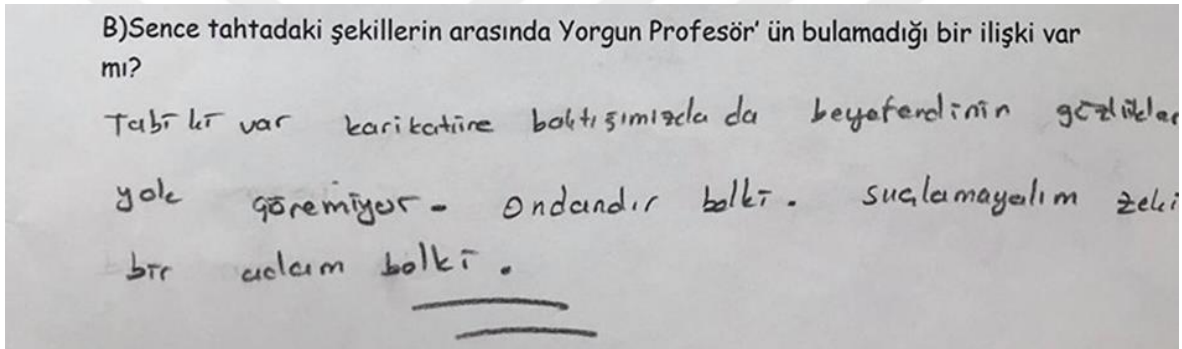 B)Sence tahtadaki şekillerin arasında Yorgun Profesör' ün bulamadığı bir ilişki var
mı?
Tabi ki var karikatüre baktığımızda da beyefendinin gözlükler
yok göremiyor - ondandır belki. suçlamayalım zeki
bir adam belki.